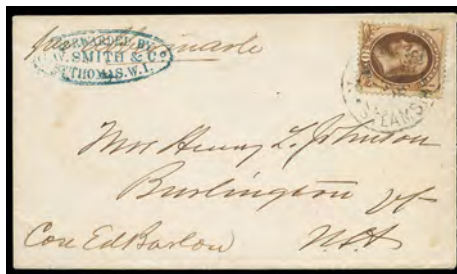 FORWARDED BY
W. SMITH & Co
ST THOMAS. W.I.
STEAMSH
Mrs Henry L. Johnson
Burlington Vt
Care Ed Barlow U.S.A